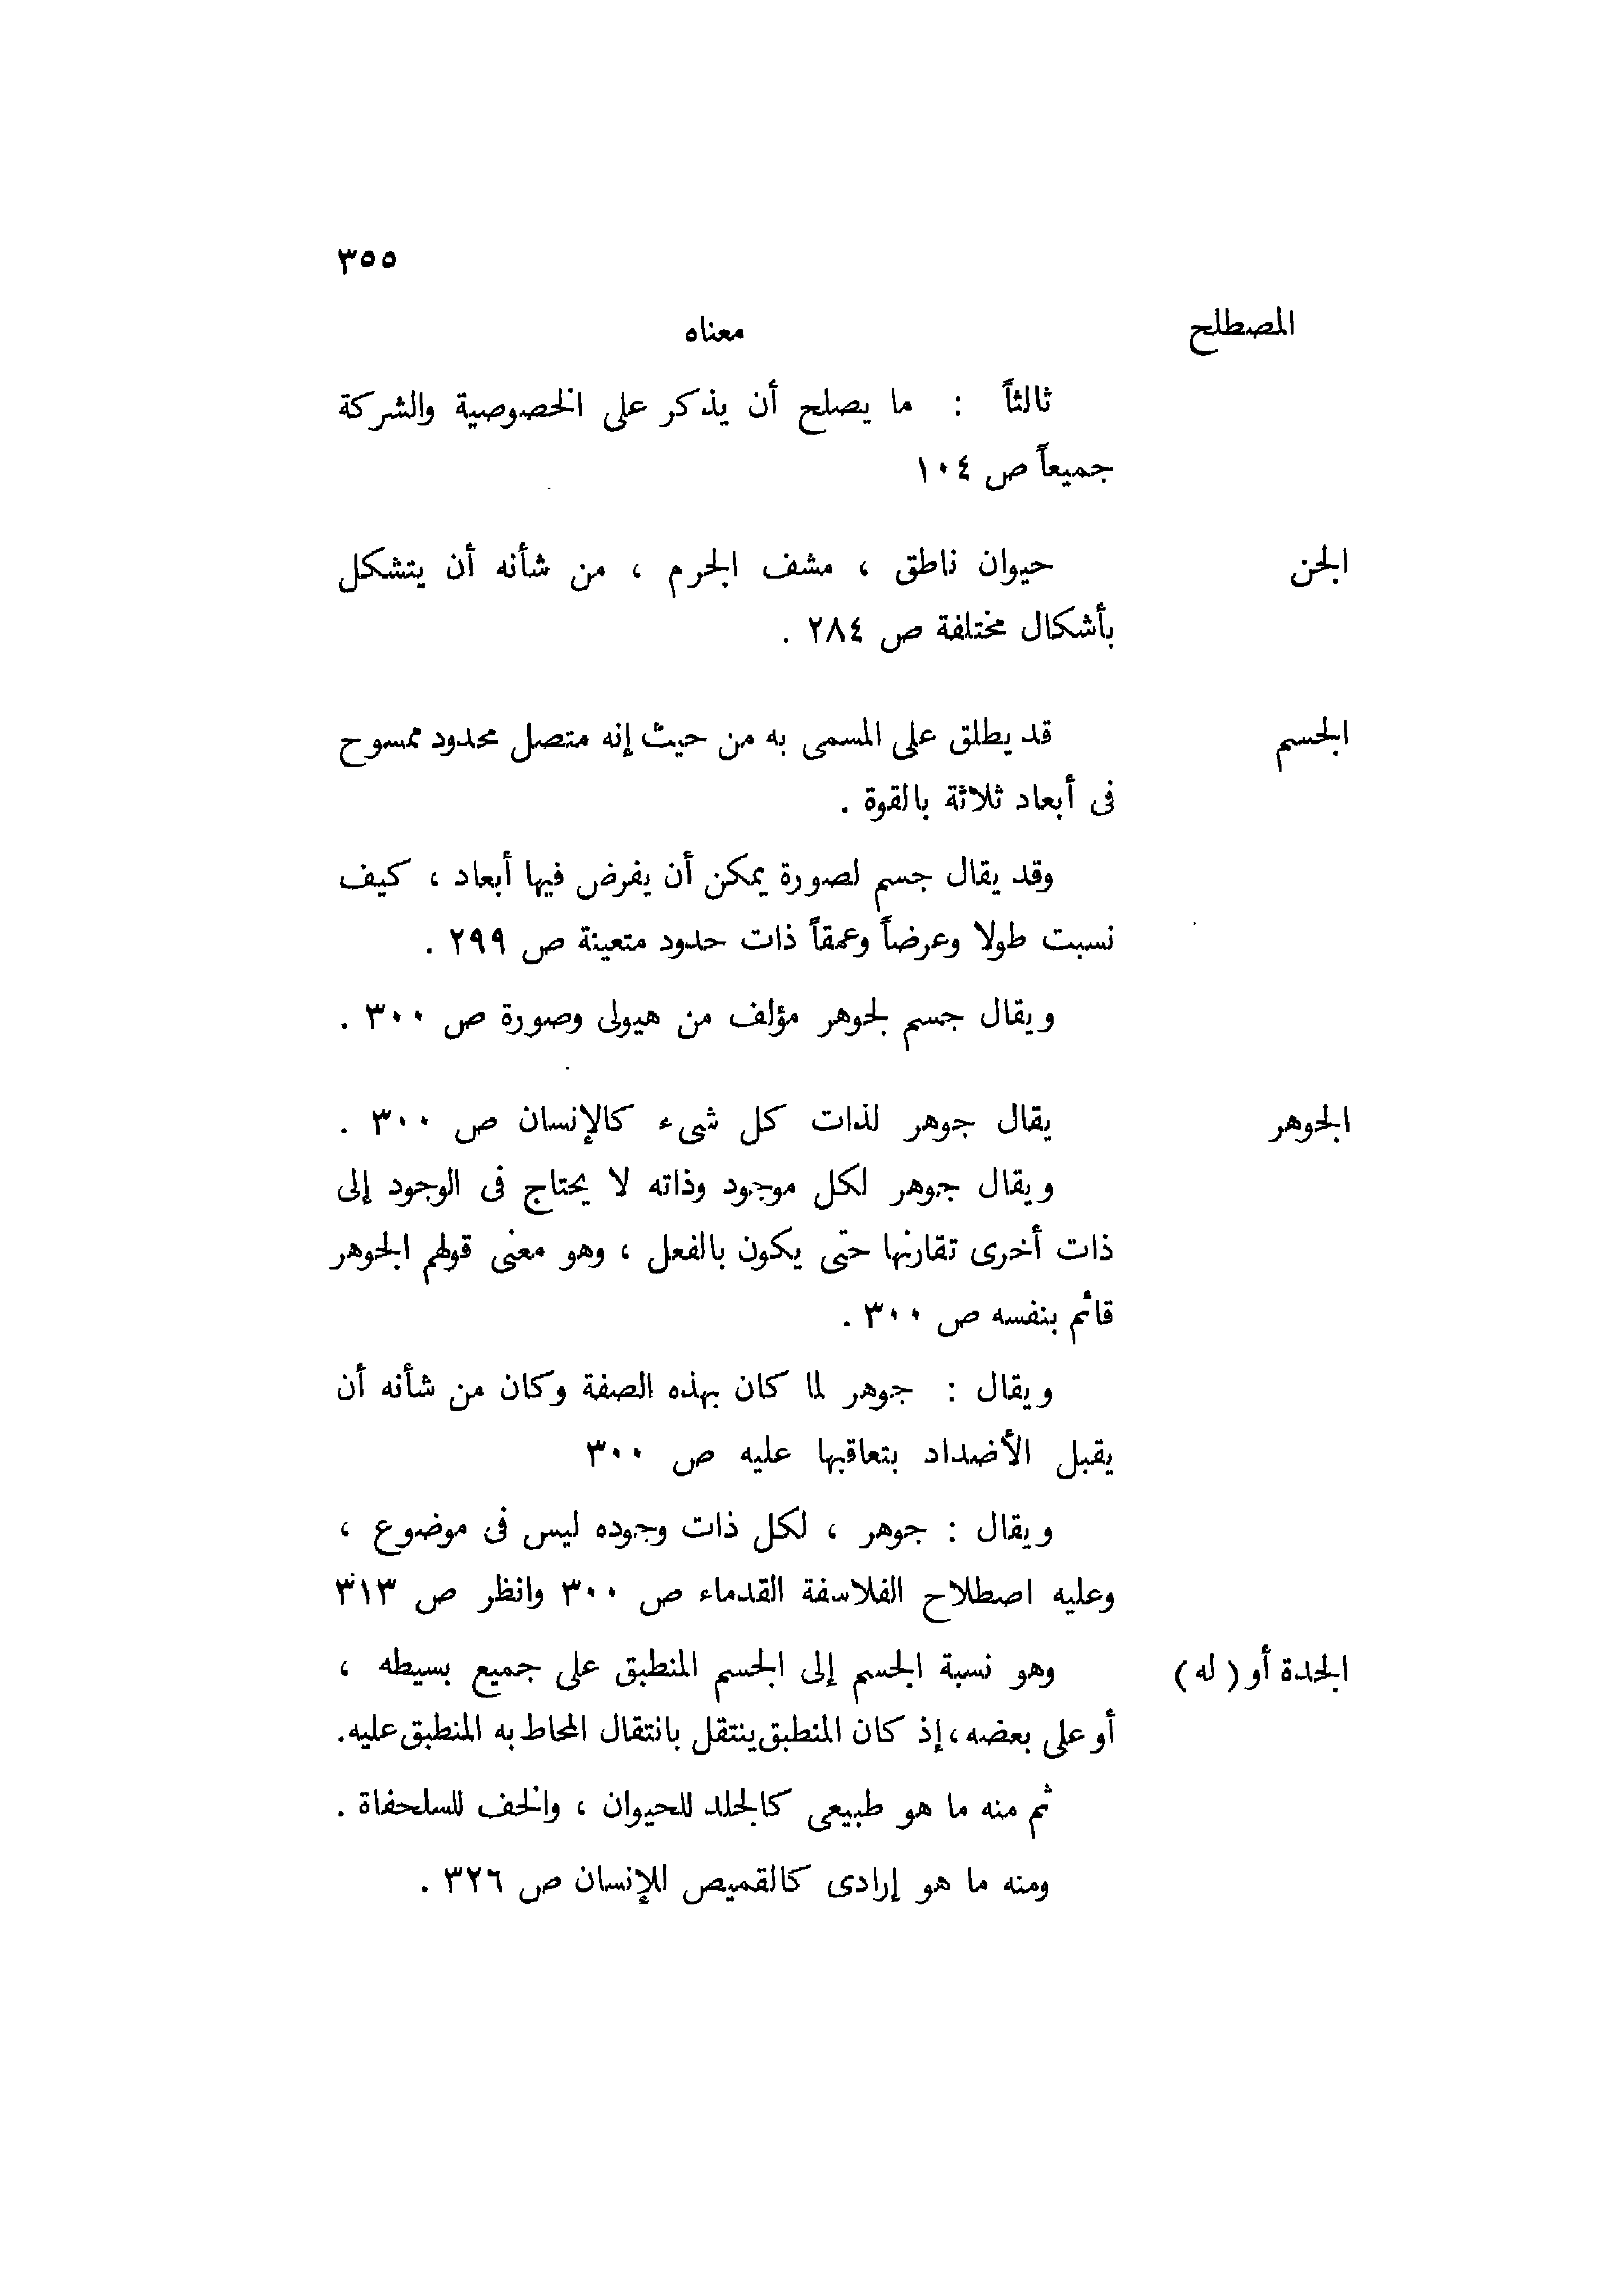 ٣٥٥
المصطلح معناه
ثالثاً : ما يصلح أن يذكر على الخصوصية والشركة
جميعاً ص ١٠٤
الجن حيوان ناطق ، مشف الجرم ، من شأنه أن يتشكل
بأشكال مختلفة ص ٢٨٤ .
الجسم قد يطلق على المسمى به من حيث إنه متصل محدود ممسوح
فى أبعاد ثلاثة بالقوة .
وقد يقال جسم لصورة يمكن أن يفرض فيها أبعاد ، كيف
نسبت طولا وعرضاً وعمقاً ذات حدود متعينة ص ٢٩٩ .
ويقال جسم لجوهر مؤلف من هيولى وصورة ص ٣٠٠ .
الجوهر يقال جوهر لذات كل شىء كالإنسان ص ٣٠٠ .
ويقال جوهر لكل موجود وذاته لا يحتاج فى الوجود إلى
ذات أخرى تقارنها حتى يكون بالفعل ، وهو معنى قولهم الجوهر
قائم بنفسه ص ٣٠٠ .
ويقال : جوهر لما كان بهذه الصفة وكان من شأنه أن
يقبل الأضداد بتعاقبها عليه ص ٣٠٠
ويقال : جوهر ، لكل ذات وجوده ليس فى موضوع ،
وعليه اصطلاح الفلاسفة القدماء ص ٣٠٠ وانظر ص ٣١٣
الجدة أو ( له ) وهو نسبة الجسم إلى الجسم المنطبق على جميع بسيطه ،
أو على بعضه ، إذ كان المنطبق ينتقل بانتقال المحاط به المنطبق عليه .
ثم منه ما هو طبيعى كالجلد للحيوان ، والخف للسلحفاة .
ومنه ما هو إرادى كالقميص للإنسان ص ٣٢٦ .